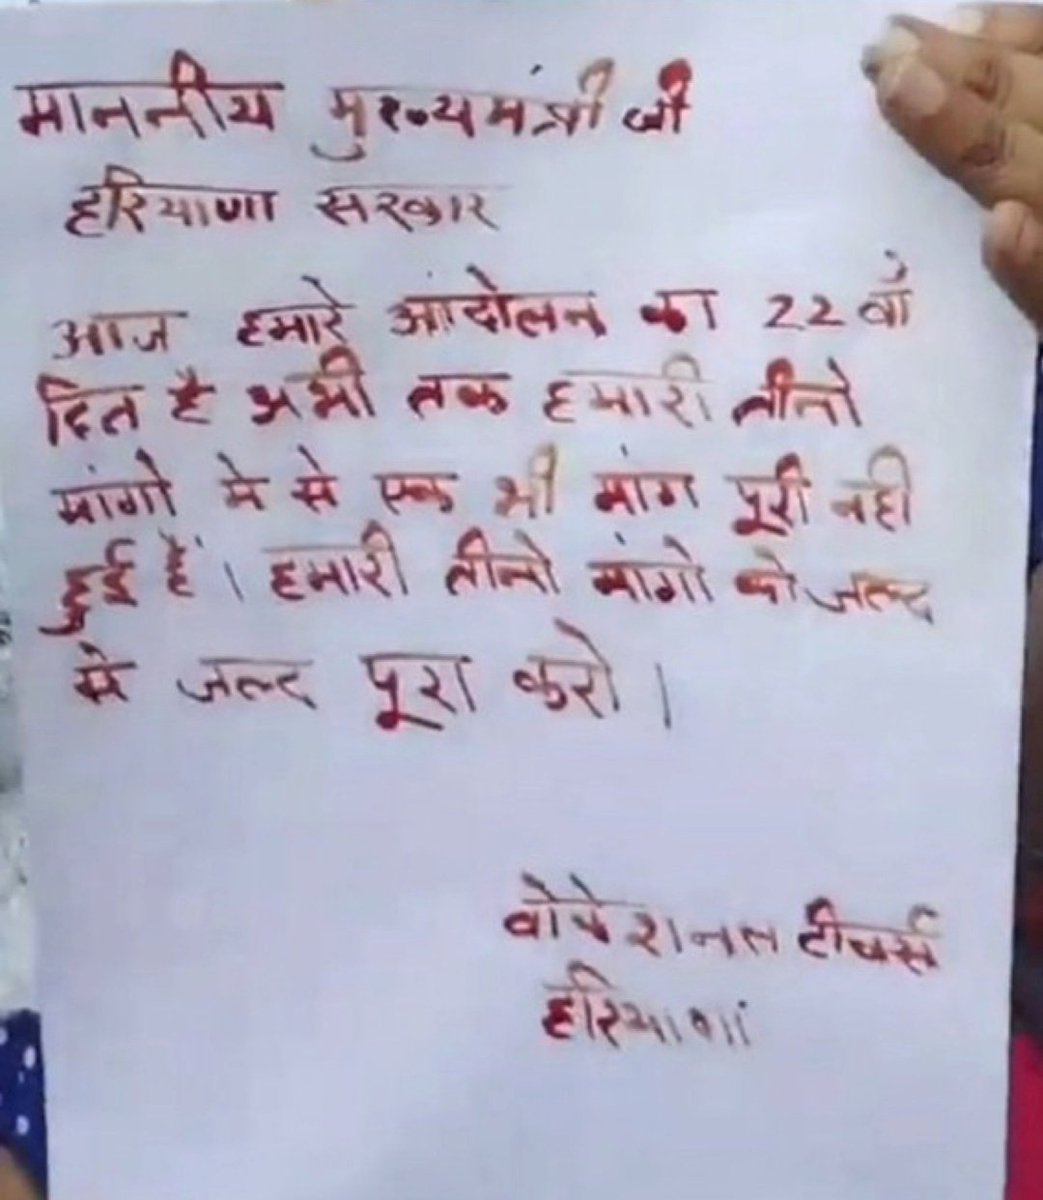 माननीय मुख्यमंत्री जी
हरियाणा सरकार
आज हमारे आंदोलन का 22 वाँ
दिन है अभी तक हमारी तीनो
मांगो मे से एक भी मांग पूरी नही
हुई हैं। हमारी तीनो मांगो को जल्द
से जल्द पूरा करो।
वोकेशनल टीचर्स
हरियाणा